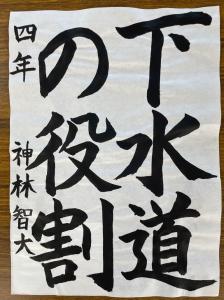 下水道
の役割
四年
神林智大